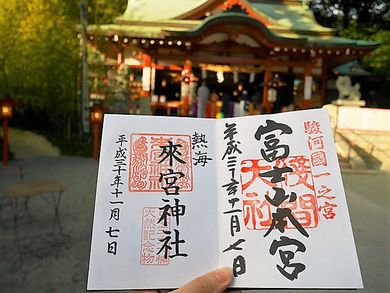 駿河國一之宮
富士山本宮
淺間大社
平成三十年十一月七日
熱海
來宮神社
天然記念物
平成三十年十一月七日